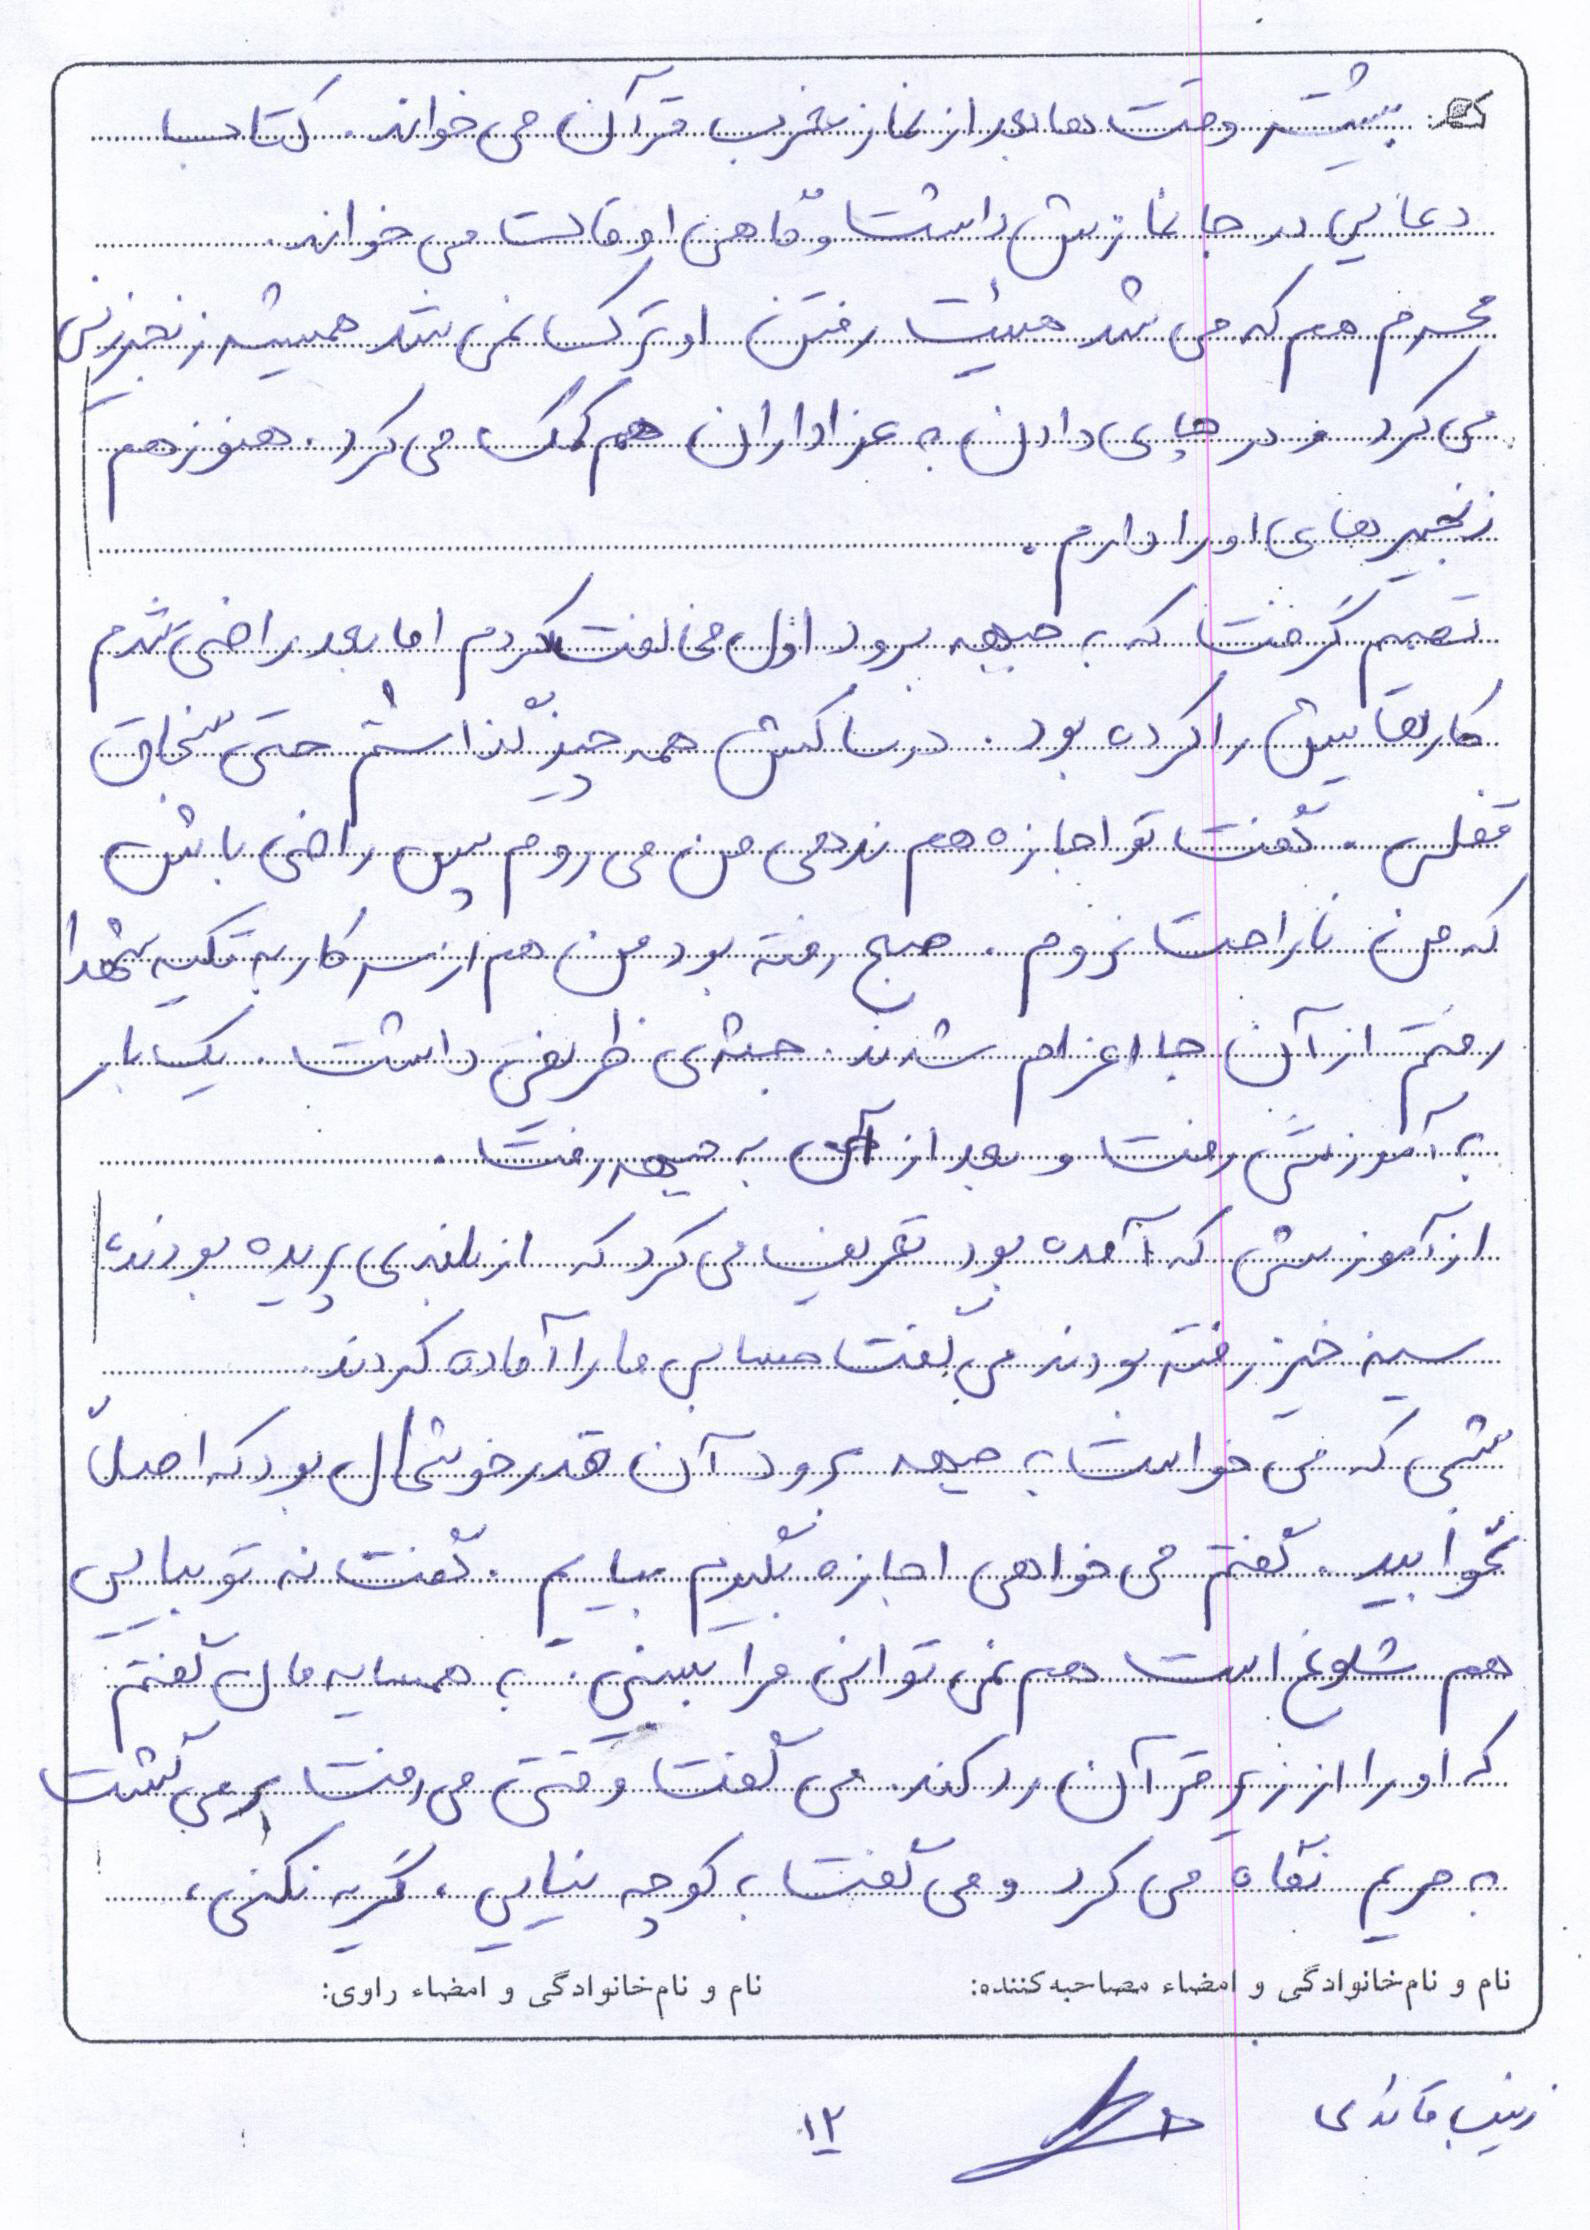 بیشتر وقت ها بعد از نماز مغرب قرآن می خواند. کتاب
دعایی در جانمازش داشت و گاهی اوقات می خواند.
محرم هم که می شد هیئت رفتن او ترک نمی شد همیشه زنجیرزنی
می کرد و در چای دادن به عزاداران هم کمک می کرد. هنوز هم
زنجیرهای او را دارم.
تصمیم گرفت که به جبهه برود اول مخالفت کردم اما بعد راضی شدم
کارهایش را کرده بود. در ساکش همه چیز گذاشتم حتی سنجاق
قفلی. گفت تو اجازه هم ندهی من می روم پس راضی باش
که من ناراحت نروم. صبح رفته بود من هم از سر کار به تکیه شهدا
رفتم از آن جا اعزام شدند. جثه ی ظریفی داشت. یک بار
به آموزشی رفت و بعد از آن به جبهه رفت.
از آموزشی که آمده بود تعریف می کرد که از بلندی پریده بودند،
سینه خیز رفته بودند می گفت حسابی ما را آماده کردند
شبی که می خواست به جبهه برود آن قدر خوشحال بود که اصلاً
نخوابید. گفتم می خواهی اجازه بگیرم بیایم. گفت نه تو بیایی
هم شلوغ است هم نمی توانی مرا ببینی. به همسایه مان گفتم
که او را از زیر قرآن رد کند. می گفت وقتی می رفت برمی گشت
به مریم نگاه می کرد و می گفت به کوچه نیایی، گریه نکنی،
نام و نام خانوادگی و امضاء مصاحبه کننده:
نام و نام خانوادگی و امضاء راوی:
زینب
۱۲